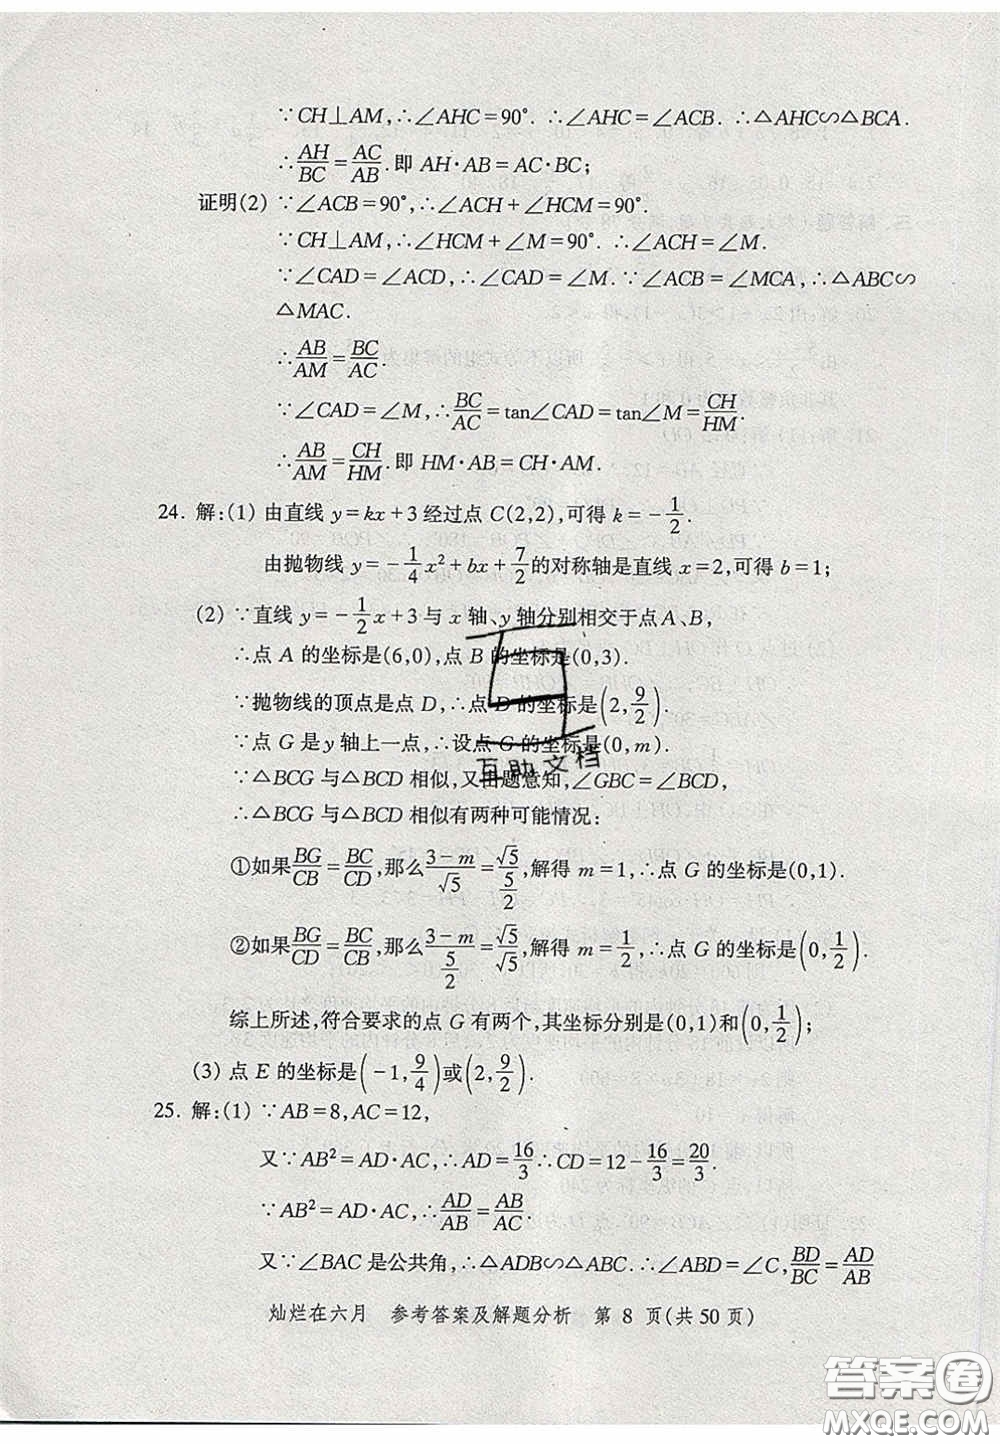 ∵CH⊥AM,∴∠AHC=90°. ∴∠AHC=∠ACB. ∴△AHC∽△BCA.
∴AH/BC=AC/AB.即 AH·AB=AC·BC;
证明(2) ∵∠ACB=90°,∴∠ACH+∠HCM=90°.
∵CH⊥AM,∴∠HCM+∠M=90°. ∴∠ACH=∠M.
∵∠CAD=∠ACD,∴∠CAD=∠M. ∵∠ACB=∠MCA,∴△ABC∽
△MAC.
∴AB/AM=BC/AC.
∵∠CAD=∠M,∴BC/AC=tan∠CAD=tan∠M=CH/HM.
∴AB/AM=CH/HM.即 HM·AB=CH·AM.
24. 解:(1) 由直线 y=kx+3 经过点 C(2,2),可得 k=-1/2.
由抛物线 y=-1/4x²+bx+7/2的对称轴是直线 x=2,可得 b=1;
(2) ∵直线 y=-1/2x+3 与 x 轴、y 轴分别相交于点A、B,
∴点 A 的坐标是(6,0),点 B 的坐标是(0,3).
∵抛物线的顶点是点 D,∴点 D 的坐标是(2,9/2).
∵点 G 是y 轴上一点,∴设点 G 的坐标是(0,m).
∵△BCG 与△BCD 相似,又由题意知,∠GBC=∠BCD,
∴△BCG 与△BCD 相似有两种可能情况:
①如果BG/CB=BC/CD,那么(3-m)/√5=√5/(5/2),解得 m=1,∴点 G 的坐标是(0,1).
②如果BG/CD=BC/CB,那么(3-m)/(5/2)=√5/√5,解得 m=1/2,∴点 G 的坐标是(0,1/2).
综上所述,符合要求的点 G 有两个,其坐标分别是(0,1)和(0,1/2);
(3) 点 E 的坐标是(-1,9/4)或(2,9/2).
25. 解:(1) ∵AB=8,AC=12,
又∵AB²=AD·AC,∴AD=16/3∴CD=12-16/3=20/3.
∵AB²=AD·AC,∴AD/AB=AB/AC.
又∵∠BAC 是公共角,∴△ADB∽△ABC,∴∠ABD=∠C,BD/BC=AD/AB
灿烂在六月 参考答案及解题分析 第 8 页(共 50 页)
互助文档
答案圈
MXQE.COM